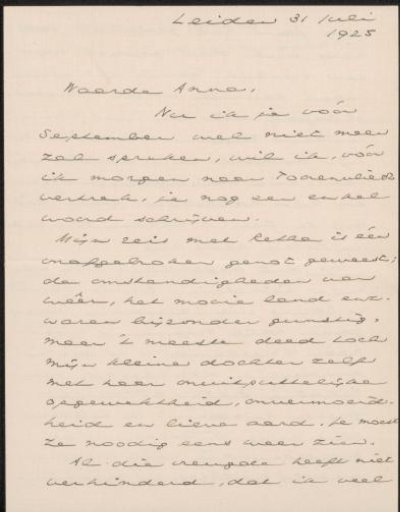 Leiden 31 Juli
1925
Waarde Anna,
Nu ik je vóór
September wel niet meer
zal spreken, wil ik, vóór
ik morgen naar
vertrek, je nog een enkel
woord schrijven.
Mijn reis met is één
onafgebroken genot geweest;
de omstandigheden van
wéér, het mooie land enz.
waren bijzonder gunstig,
maar 't meeste deed toch
mijn kleine dochter zelf
met haar onuitputtelijke
opgewektheid, onvermoeid-
heid en lieve aard. Je moest
ze noodig eens weer zien.
Al die vreugde heeft niet
verhinderd, dat ik veel